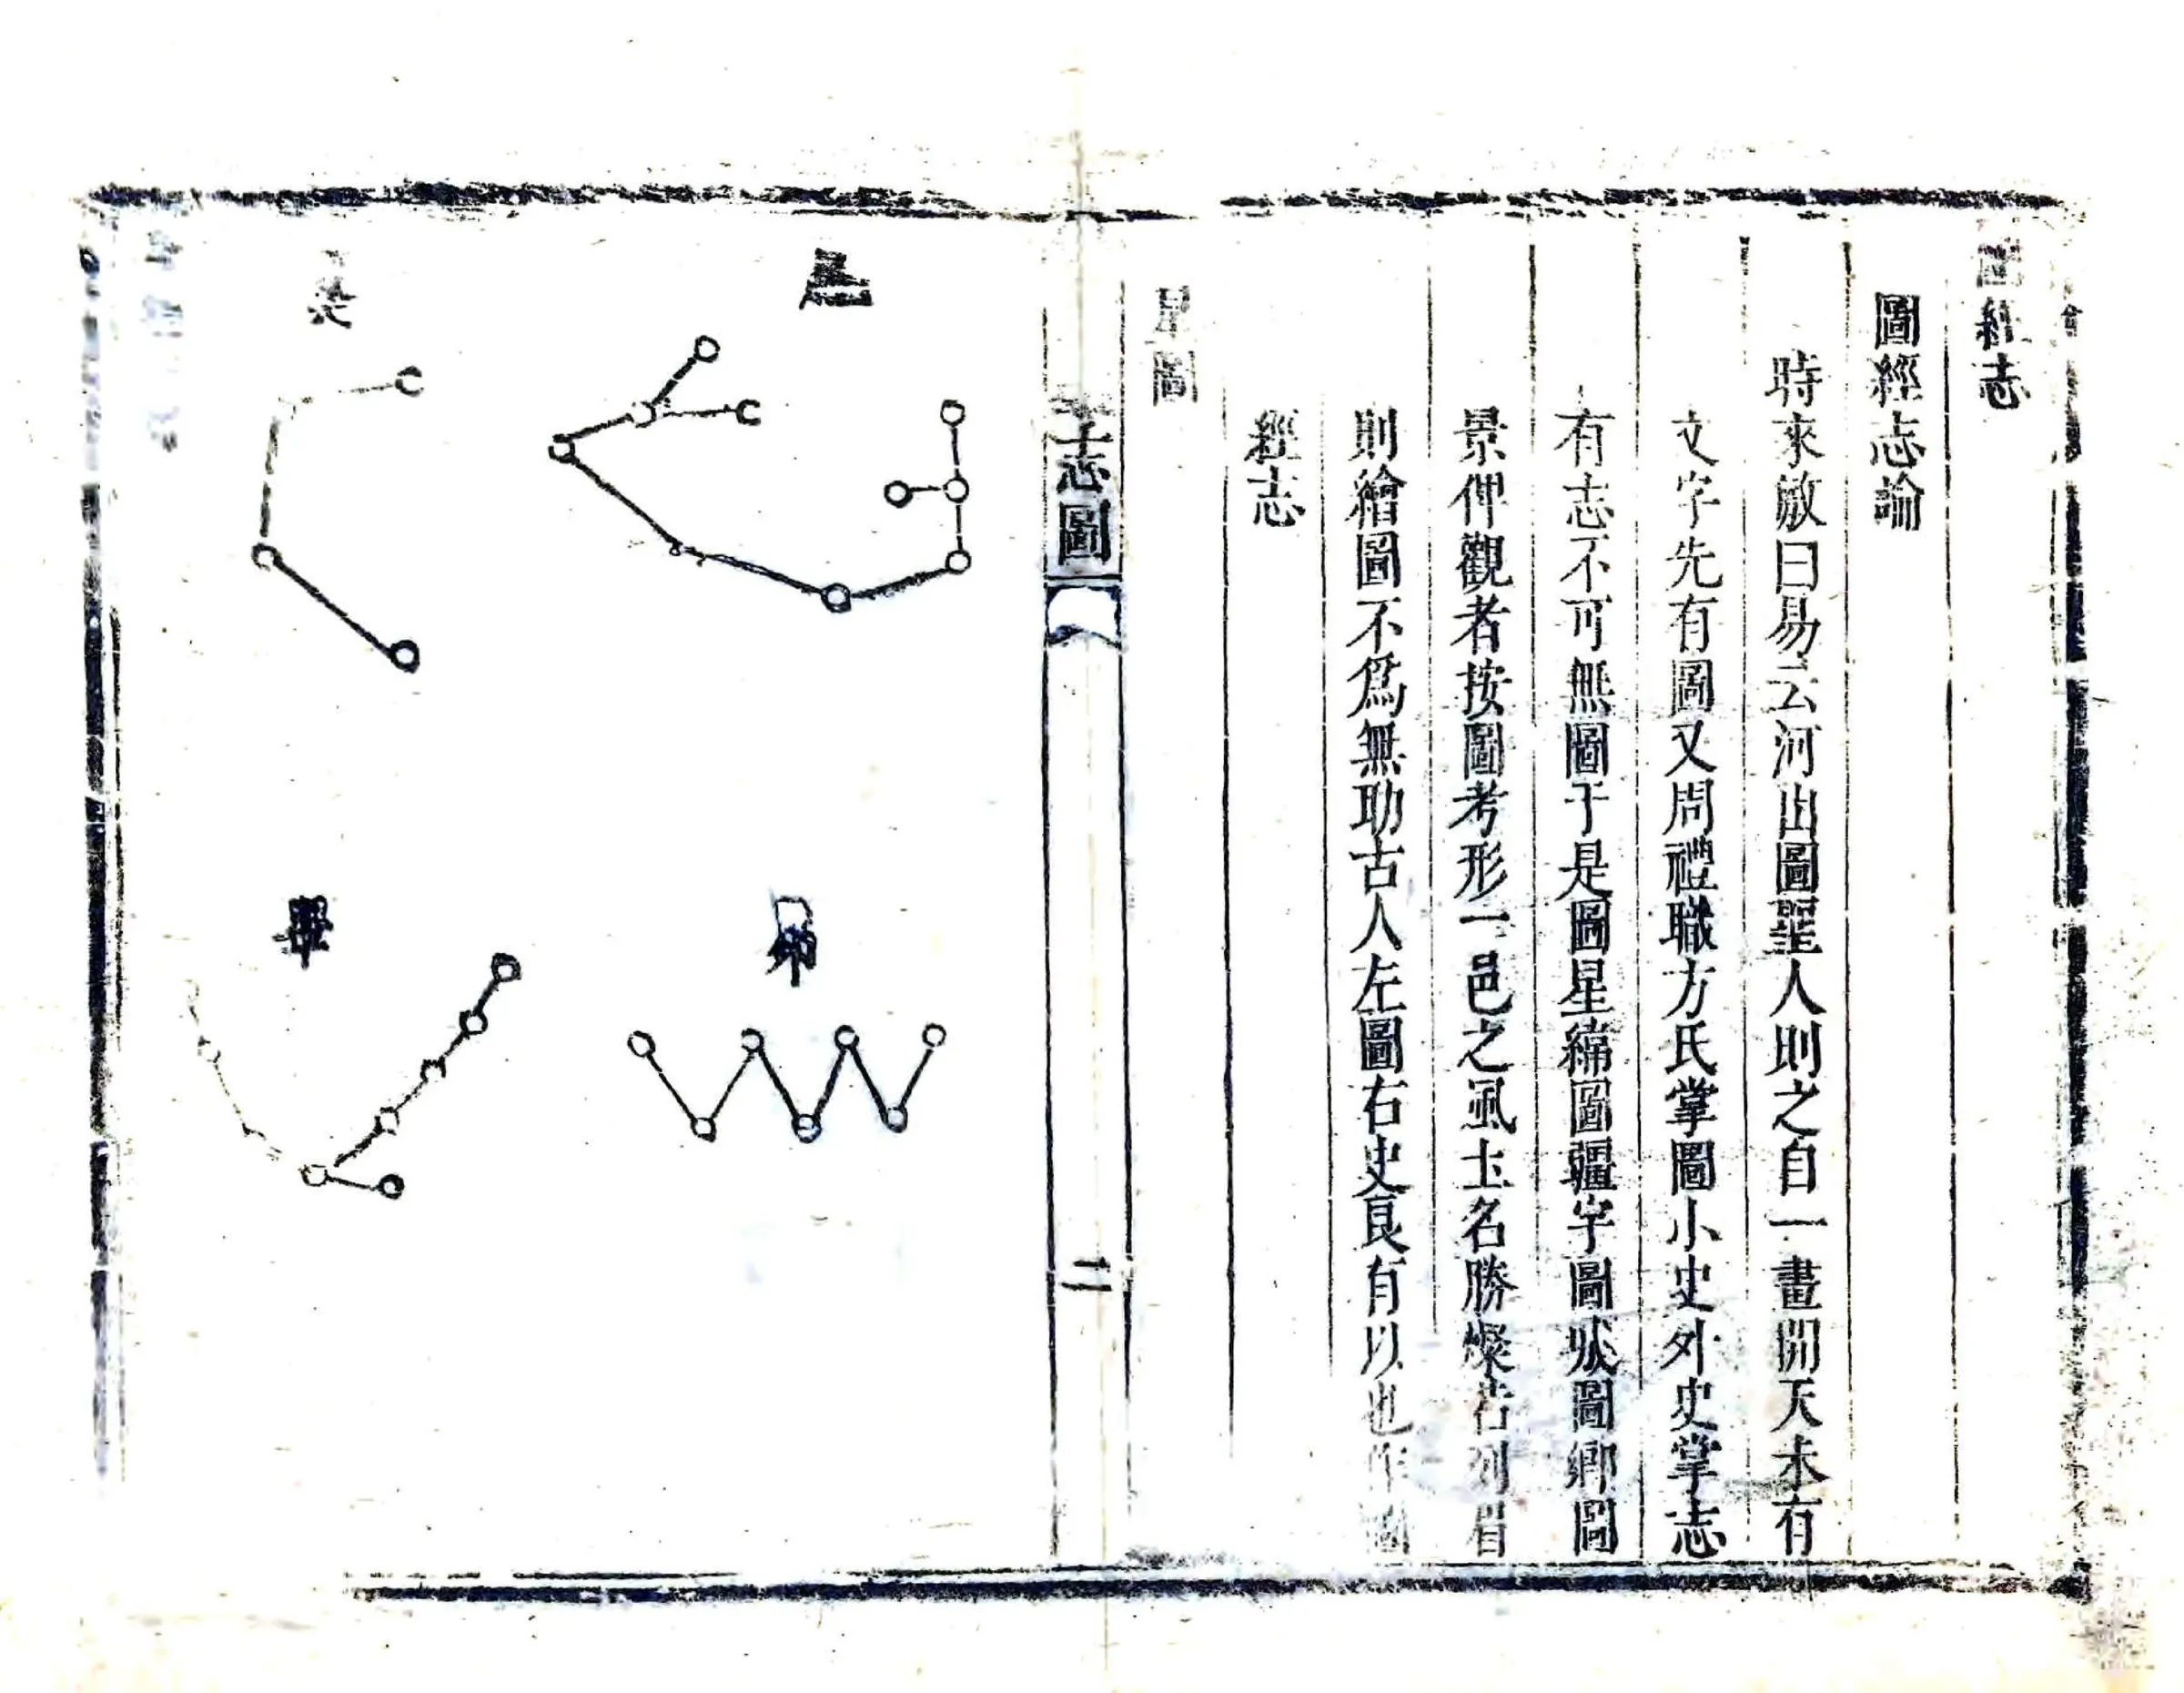 圖經志
圖經志論
時來敏曰易云河出圖聖人則之自一畫開天未有
文字先有圖又周禮職方氏掌圖小史外史掌志
有志不可無圖于是圖星繪圖疆字圖城圖鄉圖
景俾觀者按圖考形一邑之風土名勝燦若列眉
則繪圖不爲無助古人左圖右史良有以也作圖
經志
星圖
志圖
二
昴
畢